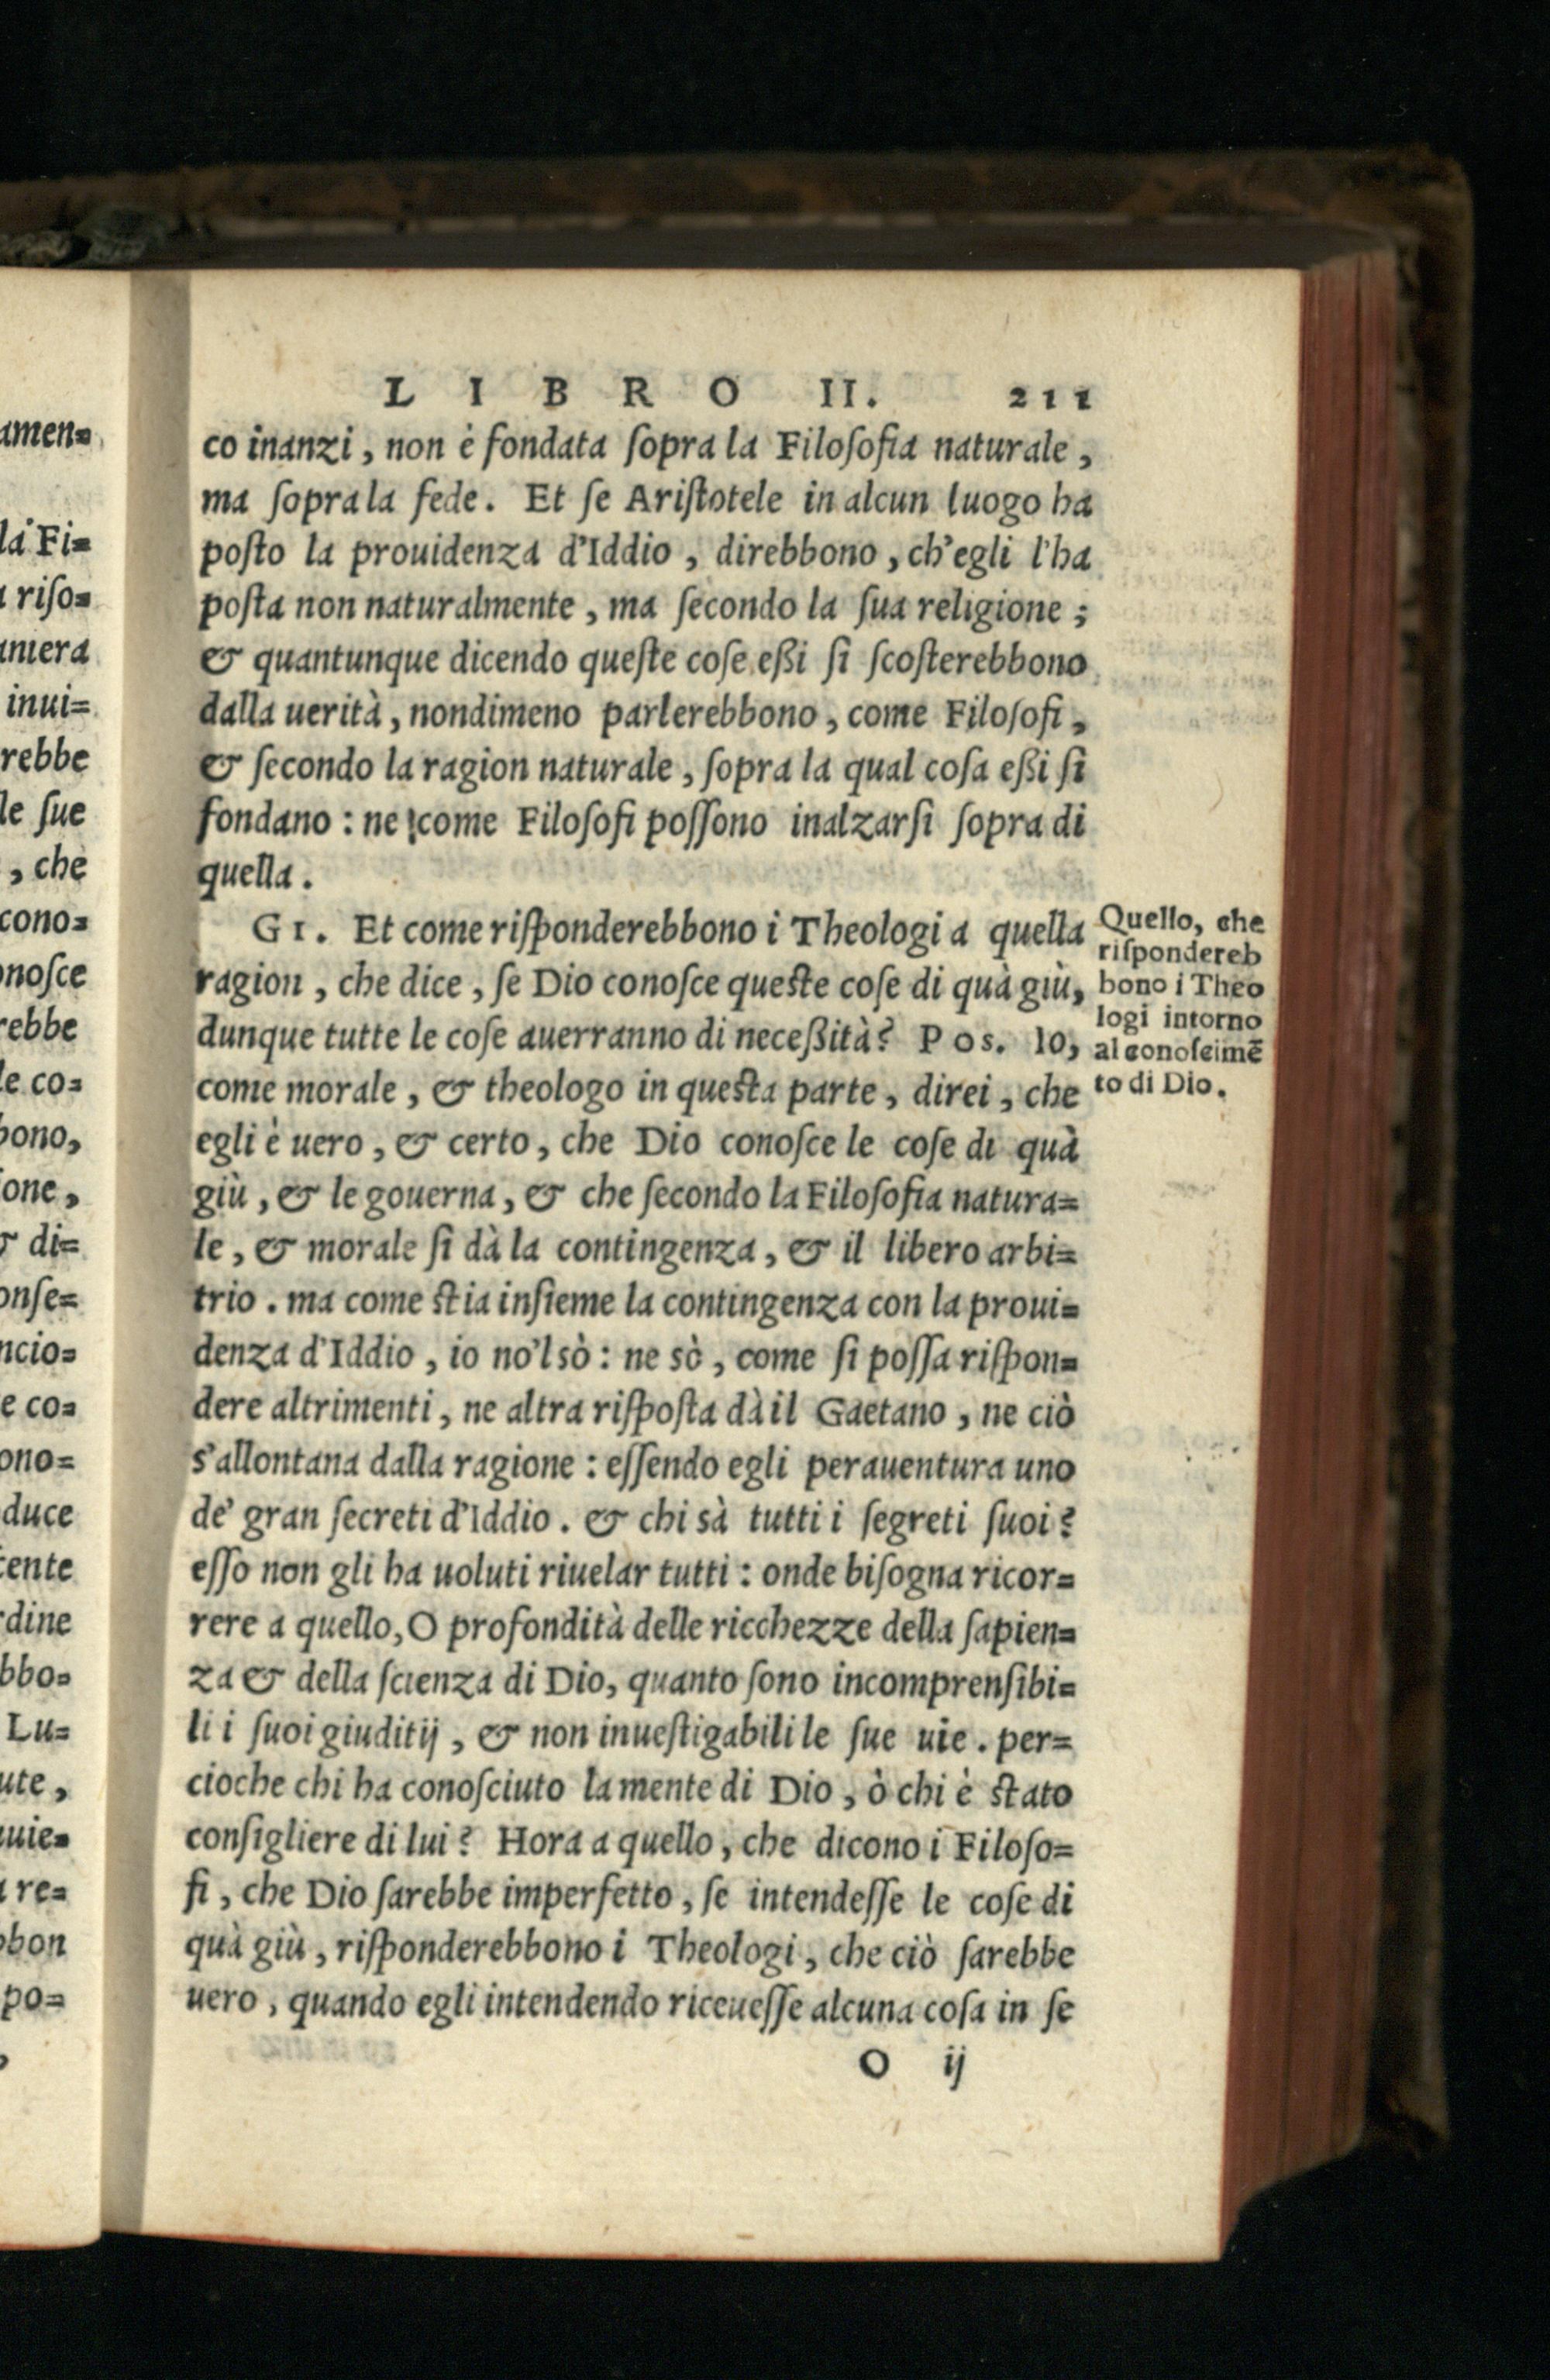 amen=
la Fi=
riso=
niera
inui=
rebbe
le ſue
, che
cono=
noſce
rebbe
le co=
bono,
one,
& di=
onſe=
ncio=
e co=
ono=
duce
cente
rdine
bbo=
Lu=
ute,
uie=
re=
bbon
po=
LIBRO II. 211
co inanzi, non è fondata ſopra la Filoſofia naturale,
ma ſopra la fede. Et ſe Ariſtotele in alcun luogo ha
poſto la prouidenza d'Iddio, direbbono, ch'egli l'ha
poſta non naturalmente, ma ſecondo la ſua religione;
& quantunque dicendo queſte coſe eßi ſi ſcoſterebbono
dalla uerità, nondimeno parlerebbono, come Filoſofi,
& ſecondo la ragion naturale, ſopra la qual coſa eßi ſi
fondano: ne come Filoſofi poſſono inalzarſi ſopra di
quella.
GI. Et come riſponderebbono i Theologi a quella
ragion, che dice, ſe Dio conoſce queſte coſe di quà giù,
dunque tutte le coſe auerranno di neceßità? POS. Io,
come morale, & theologo in queſta parte, direi, che
egli è uero, & certo, che Dio conoſce le coſe di quà
giù, & le gouerna, & che ſecondo la Filoſofia natura=
le, & morale ſi dà la contingenza, & il libero arbi=
trio. ma come ſtia inſieme la contingenza con la proui=
denza d'Iddio, io no'l sò: ne sò, come ſi poſſa riſpon=
dere altrimenti, ne altra riſpoſta dà il Gaetano, ne ciò
s'allontana dalla ragione: eſſendo egli perauentura uno
de' gran ſecreti d'Iddio. & chi sà tutti i ſegreti ſuoi?
eſſo non gli ha uoluti riuelar tutti: onde biſogna ricor=
rere a quello, O profondità delle ricchezze della ſapien=
za & della ſcienza di Dio, quanto ſono incomprenſibi=
li i ſuoi giuditij, & non inueſtigabili le ſue uie. per=
cioche chi ha conoſciuto la mente di Dio, ò chi è ſtato
conſigliere di lui? Hora a quello, che dicono i Filoſo=
fi, che Dio ſarebbe imperfetto, ſe intendeſſe le coſe di
quà giù, riſponderebbono i Theologi, che ciò ſarebbe
uero, quando egli intendendo riceueſſe alcuna coſa in ſe
O ij
Quello, che
riſpondereb
bono i Theo
logi intorno
al conoſcimē
to di Dio.